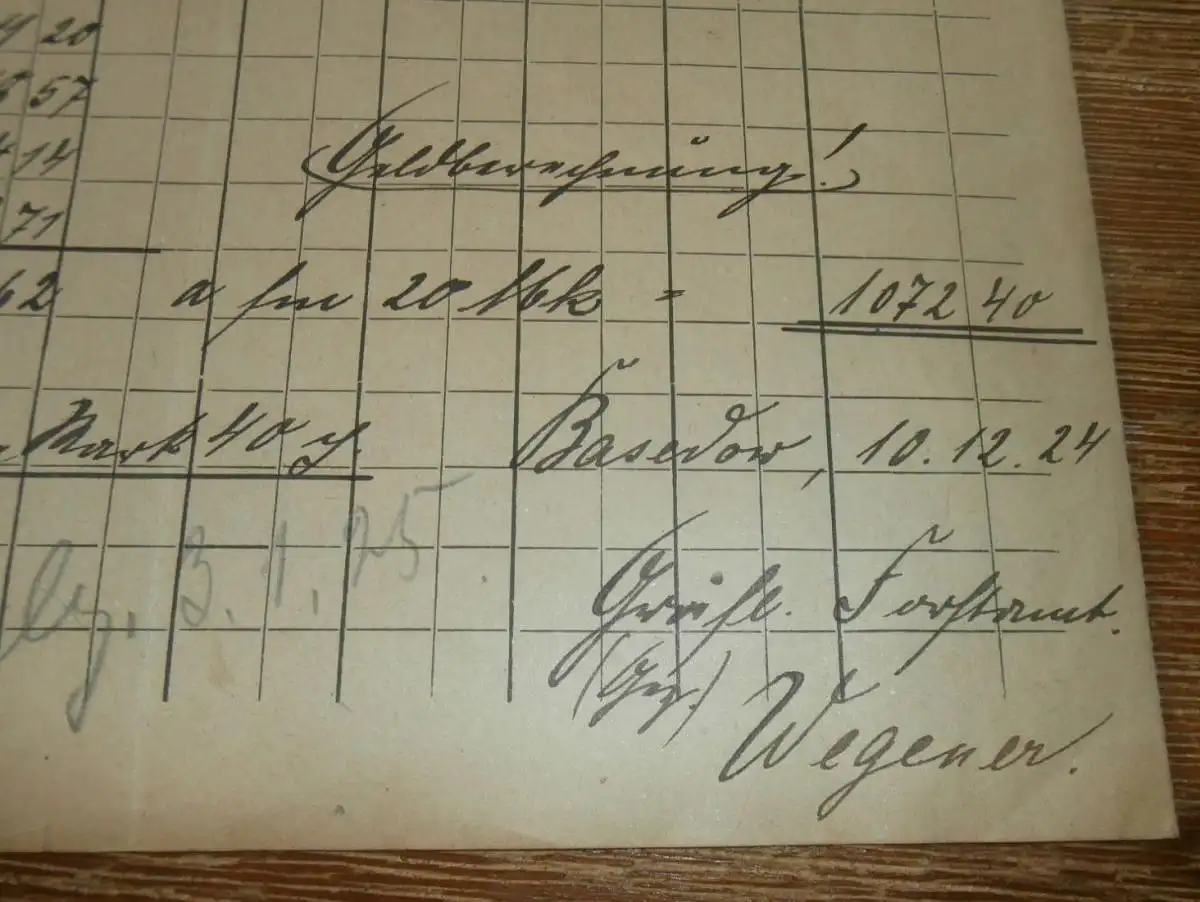 20
57
14
71
Geldberechnung!
62 a fm 20 Mk = 1072 40
Mark 40 Pf. Basedow, 10.12.24
3.1.25
Gräfl. Forstamt.
(Gez.)
Wegener.